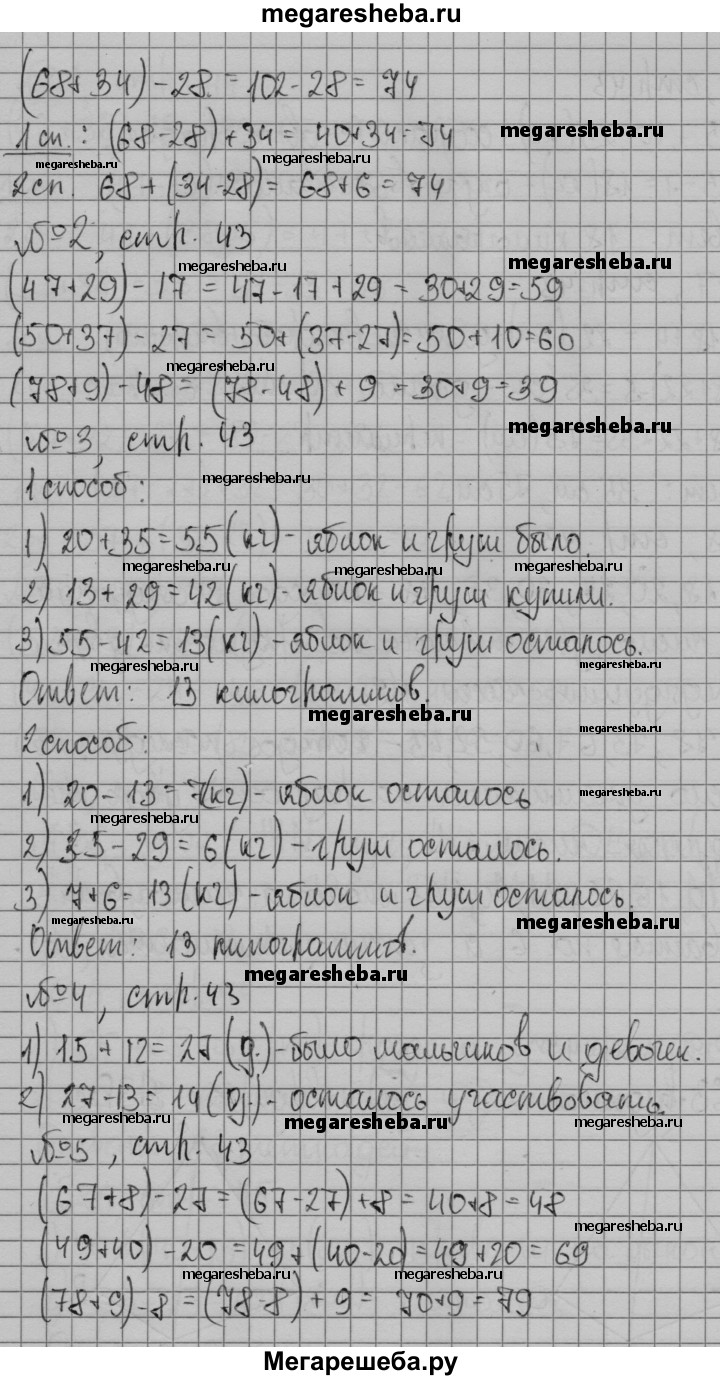 megaresheba.ru
(68+34)-28 = 102-28 = 74
1 сп.: (68-28)+34 = 40+34 = 74
megaresheba.ru
megaresheba.ru
megaresheba.ru
2 сп. 68+(34-28) = 68+6 = 74
№2, стр. 43
megaresheba.ru
megaresheba.ru
(47+29)-17 = 47-17+29 = 30+29=59
(50+37)-27 = 50+(37-27)=50+10=60
megaresheba.ru
(78+9)-48 = (78-48)+9 = 30+9=39
№3, стр. 43
megaresheba.ru
1 способ:
megaresheba.ru
1) 20+35=55 (кг)- яблок и груш было.
megaresheba.ru
megaresheba.ru
megaresheba.ru
2) 13+29=42 (кг)- яблок и груш купили.
3) 55-42=13(кг)-яблок и груш осталось.
megaresheba.ru
megaresheba.ru
Ответ: 13 килограммов.
megaresheba.ru
megaresheba.ru
2 способ:
1) 20-13=7(кг)-яблок осталось
megaresheba.ru
megaresheba.ru
2) 35-29=6 (кг)-груш осталось.
3) 7+6=13 (кг)-яблок и груш осталось.
megaresheba.ru
megaresheba.ru
Ответ: 13 килограммов.
megaresheba.ru
№4, стр. 43
1) 15+12=27 (д.)-было мальчиков и девочек.
2) 27-13=14 (д.)- осталось участвовать.
megaresheba.ru
megaresheba.ru
megaresheba.ru
№5, стр. 43
(67+8)-27=(67-27)+8=40+8=48
megaresheba.ru
(49+40)-20=49+(40-20)=49+20=69
megaresheba.ru
megaresheba.ru
(78+9)-8=(78-8)+9=70+9=79
Мегарешеба.ру